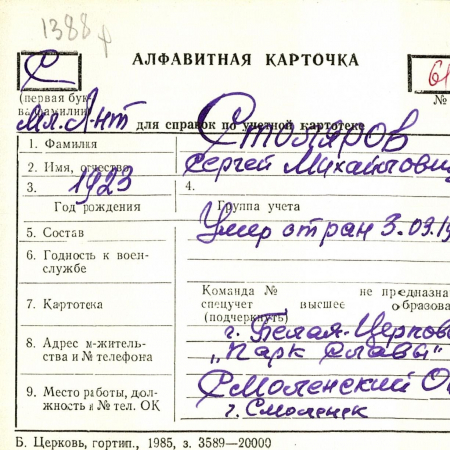 1388
АЛФАВИТНАЯ КАРТОЧКА
С
(первая бук-
ва фамилии)
№
мл. л-нт для справок по учетной картотеке
1. Фамилия Столяров
2. Имя, отчество Сергей Михайлович
3. 1923 4.
Год рождения Группа учета
5. Состав Умер от ран 3.09.19
6. Годность к воен-
службе
Команда № не предназна
7. Картотека спецучет высшее образова
(подчеркнуть)
8. Адрес м-житель-
ства и № телефона
г. Белая-Церковь
„Парк Славы"
9. Место работы, дол-
жность и № тел. ОК
Смоленский О
г. Смоленск
Б. Церковь, гортип., 1985, з. 3589—20000